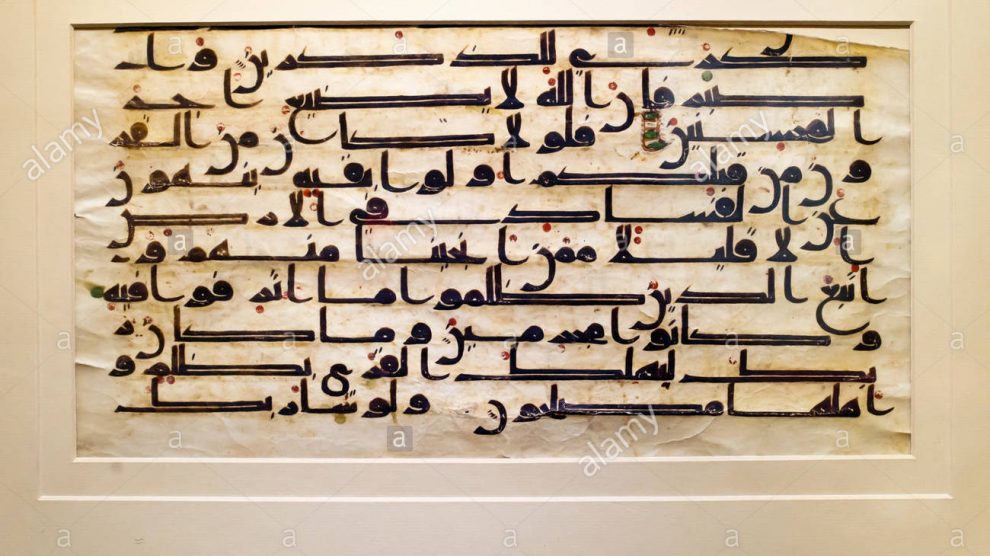 ذكرى للذكرين وا
صبر فان الله لا يضيع اجر
المحسنين فلولا كان من القر
ون من قبلكم اولوا بقيه ينهون
عن الفساد في الارض
الا قليلا ممن انجينا منهم و
اتبع الذين ظلموا ما اترفوا فيه
وكانوا مجرمين وما كان ر
بك ليهلك القرى بظلم و
اهلها مصلحون ولو شا ربك
alamy
alamy
alamy
alamy